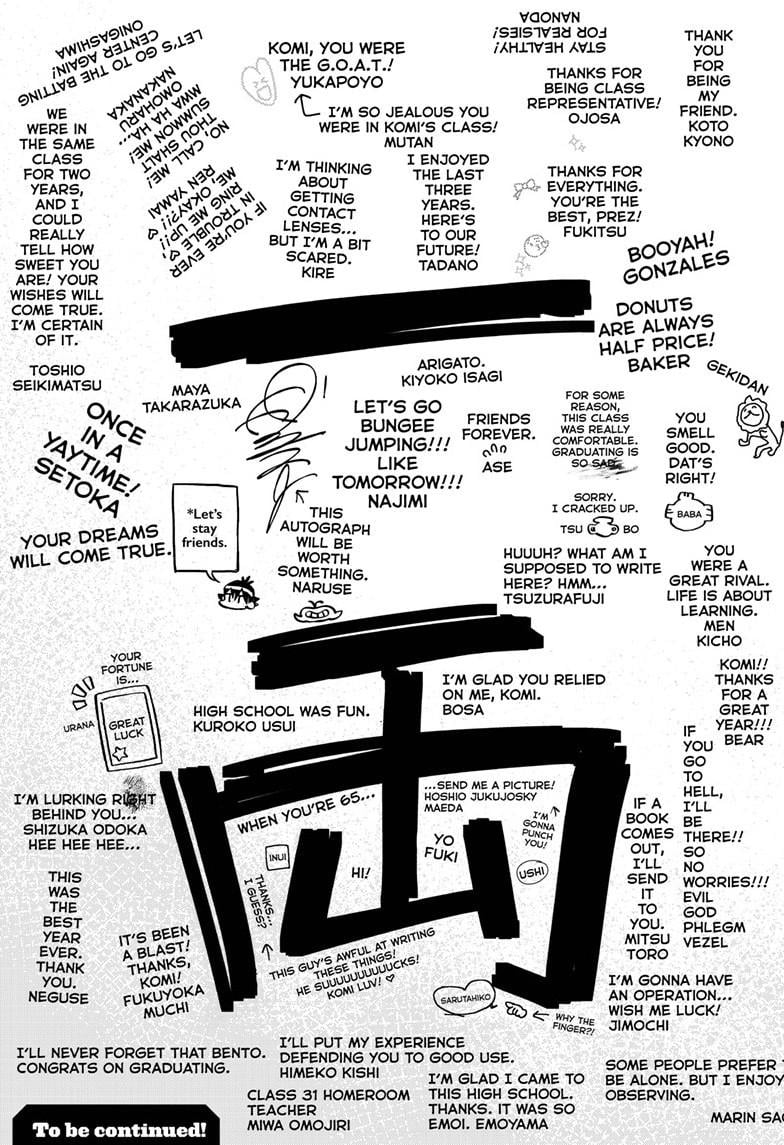 LET'S GO TO THE BATTING
CENTER AGAIN!
ONIGASHIMA
NO, CALL ME!
THOU SHALT
SUMMON ME!
MWA HA HA...
OMOHARU
NAKANAKA
IF YOU'RE EVER
IN TROUBLE,
RING ME UP!!
ME, OKAY?!!
REN YAMAI
KOMI, YOU WERE
THE G.O.A.T.!
YUKAPOYO
I'M SO JEALOUS YOU
WERE IN KOMI'S CLASS!
MUTAN
STAY HEALTHY!
FOR REALSIES!
NANODA
THANKS FOR
BEING CLASS
REPRESENTATIVE!
OJOSA
THANK
YOU
FOR
BEING
MY
FRIEND.
KOTO
KYONO
WE
WERE IN
THE SAME
CLASS
FOR TWO
YEARS,
AND I
COULD
REALLY
TELL HOW
SWEET YOU
ARE! YOUR
WISHES WILL
COME TRUE.
I'M CERTAIN
OF IT.
TOSHIO
SEIKIMATSU
I'M THINKING
ABOUT
GETTING
CONTACT
LENSES...
BUT I'M A BIT
SCARED.
KIRE
I ENJOYED
THE LAST
THREE
YEARS.
HERE'S
TO OUR
FUTURE!
TADANO
THANKS FOR
EVERYTHING.
YOU'RE THE
BEST, PREZ!
FUKITSU
BOOYAH!
GONZALES
DONUTS
ARE ALWAYS
HALF PRICE!
BAKER
GEKIDAN
MAYA
TAKARAZUKA
ARIGATO.
KIYOKO ISAGI
ONCE
IN A
YAYTIME!
SETOKA
LET'S GO
BUNGEE
JUMPING!!!
LIKE
TOMORROW!!!
NAJIMI
FRIENDS
FOREVER.
ASE
FOR SOME
REASON,
THIS CLASS
WAS REALLY
COMFORTABLE.
GRADUATING IS
SO SAD.
SORRY.
I CRACKED UP.
TSU BO
YOU
SMELL
GOOD.
DAT'S
RIGHT!
BABA
YOUR DREAMS
WILL COME TRUE.
*Let's
stay
friends.
THIS
AUTOGRAPH
WILL BE
WORTH
SOMETHING.
NARUSE
HUUUH? WHAT AM I
SUPPOSED TO WRITE
HERE? HMM...
TSUZURAFUJI
YOU
WERE A
GREAT RIVAL.
LIFE IS ABOUT
LEARNING.
MEN
KICHO
YOUR
FORTUNE
IS...
URANA
GREAT
LUCK
HIGH SCHOOL WAS FUN.
KUROKO USUI
I'M GLAD YOU RELIED
ON ME, KOMI.
BOSA
KOMI!!
THANKS
FOR A
GREAT
YEAR!!!
BEAR
IF
YOU
GO
TO
HELL,
I'LL
BE
THERE!!
SO
NO
WORRIES!!!
EVIL
GOD
PHLEGM
VEZEL
I'M LURKING RIGHT
BEHIND YOU...
SHIZUKA ODOKA
HEE HEE HEE...
WHEN YOU'RE 65...
...SEND ME A PICTURE!
HOSHIO JUKUJOSKY
MAEDA
INUI
HI!
YO
FUKI
I'M
GONNA
PUNCH
YOU!
USHI
IF A
BOOK
COMES
OUT,
I'LL
SEND
IT
TO
YOU.
MITSU
TORO
THANKS...
I GUESS?
THIS GUY'S AWFUL AT WRITING
THESE THINGS!
HE SUUUUUUUUUCKS!
KOMI LUV!
THIS
WAS
THE
BEST
YEAR
EVER.
THANK
YOU.
NEGUSE
IT'S BEEN
A BLAST!
THANKS,
KOMI!
FUKUYOKA
MUCHI
SARUTAHIKO
WHY THE
FINGER?!
I'M GONNA HAVE
AN OPERATION...
WISH ME LUCK!
JIMOCHI
I'LL NEVER FORGET THAT BENTO.
CONGRATS ON GRADUATING.
I'LL PUT MY EXPERIENCE
DEFENDING YOU TO GOOD USE.
HIMEKO KISHI
CLASS 31 HOMEROOM
TEACHER
MIWA OMOJIRI
I'M GLAD I CAME TO
THIS HIGH SCHOOL.
THANKS. IT WAS SO
EMOI. EMOYAMA
SOME PEOPLE PREFER
BE ALONE. BUT I ENJOY
OBSERVING.
MARIN
To be continued!